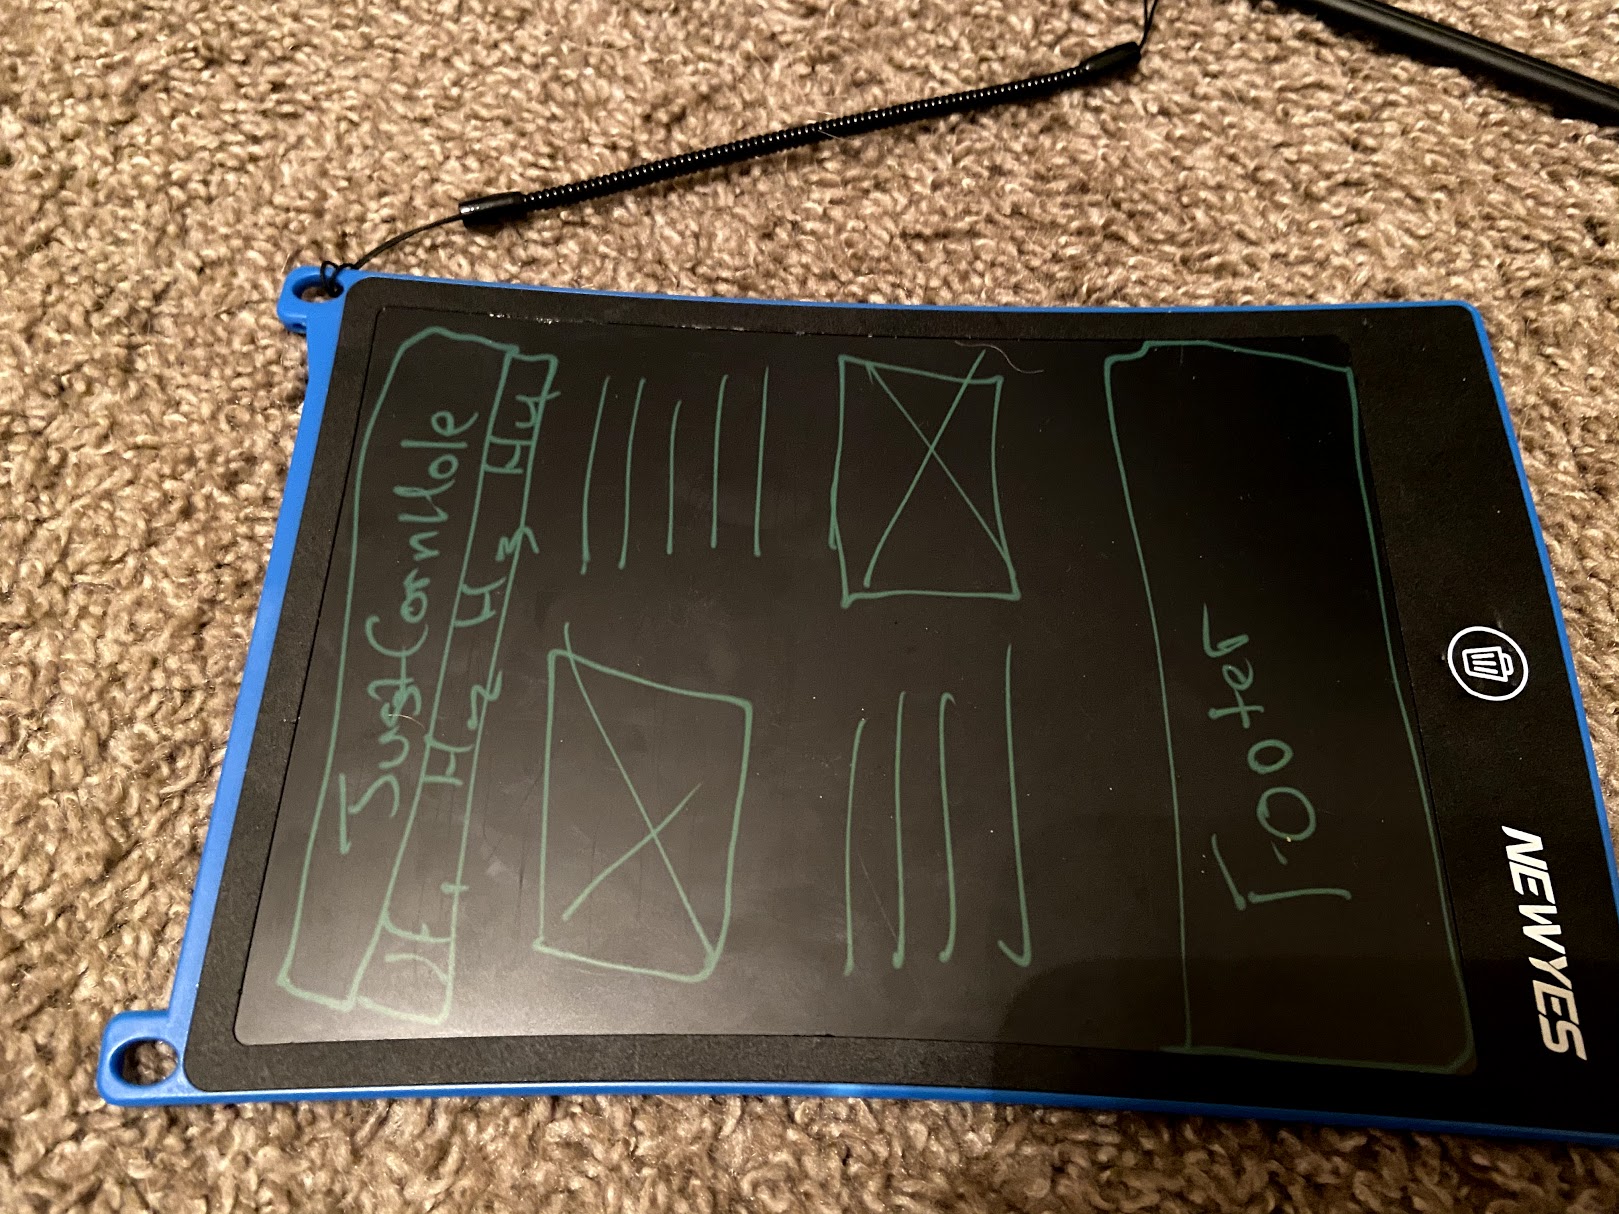 JustCornHole
H1 H2 H3 H4
Footer
NEWYES